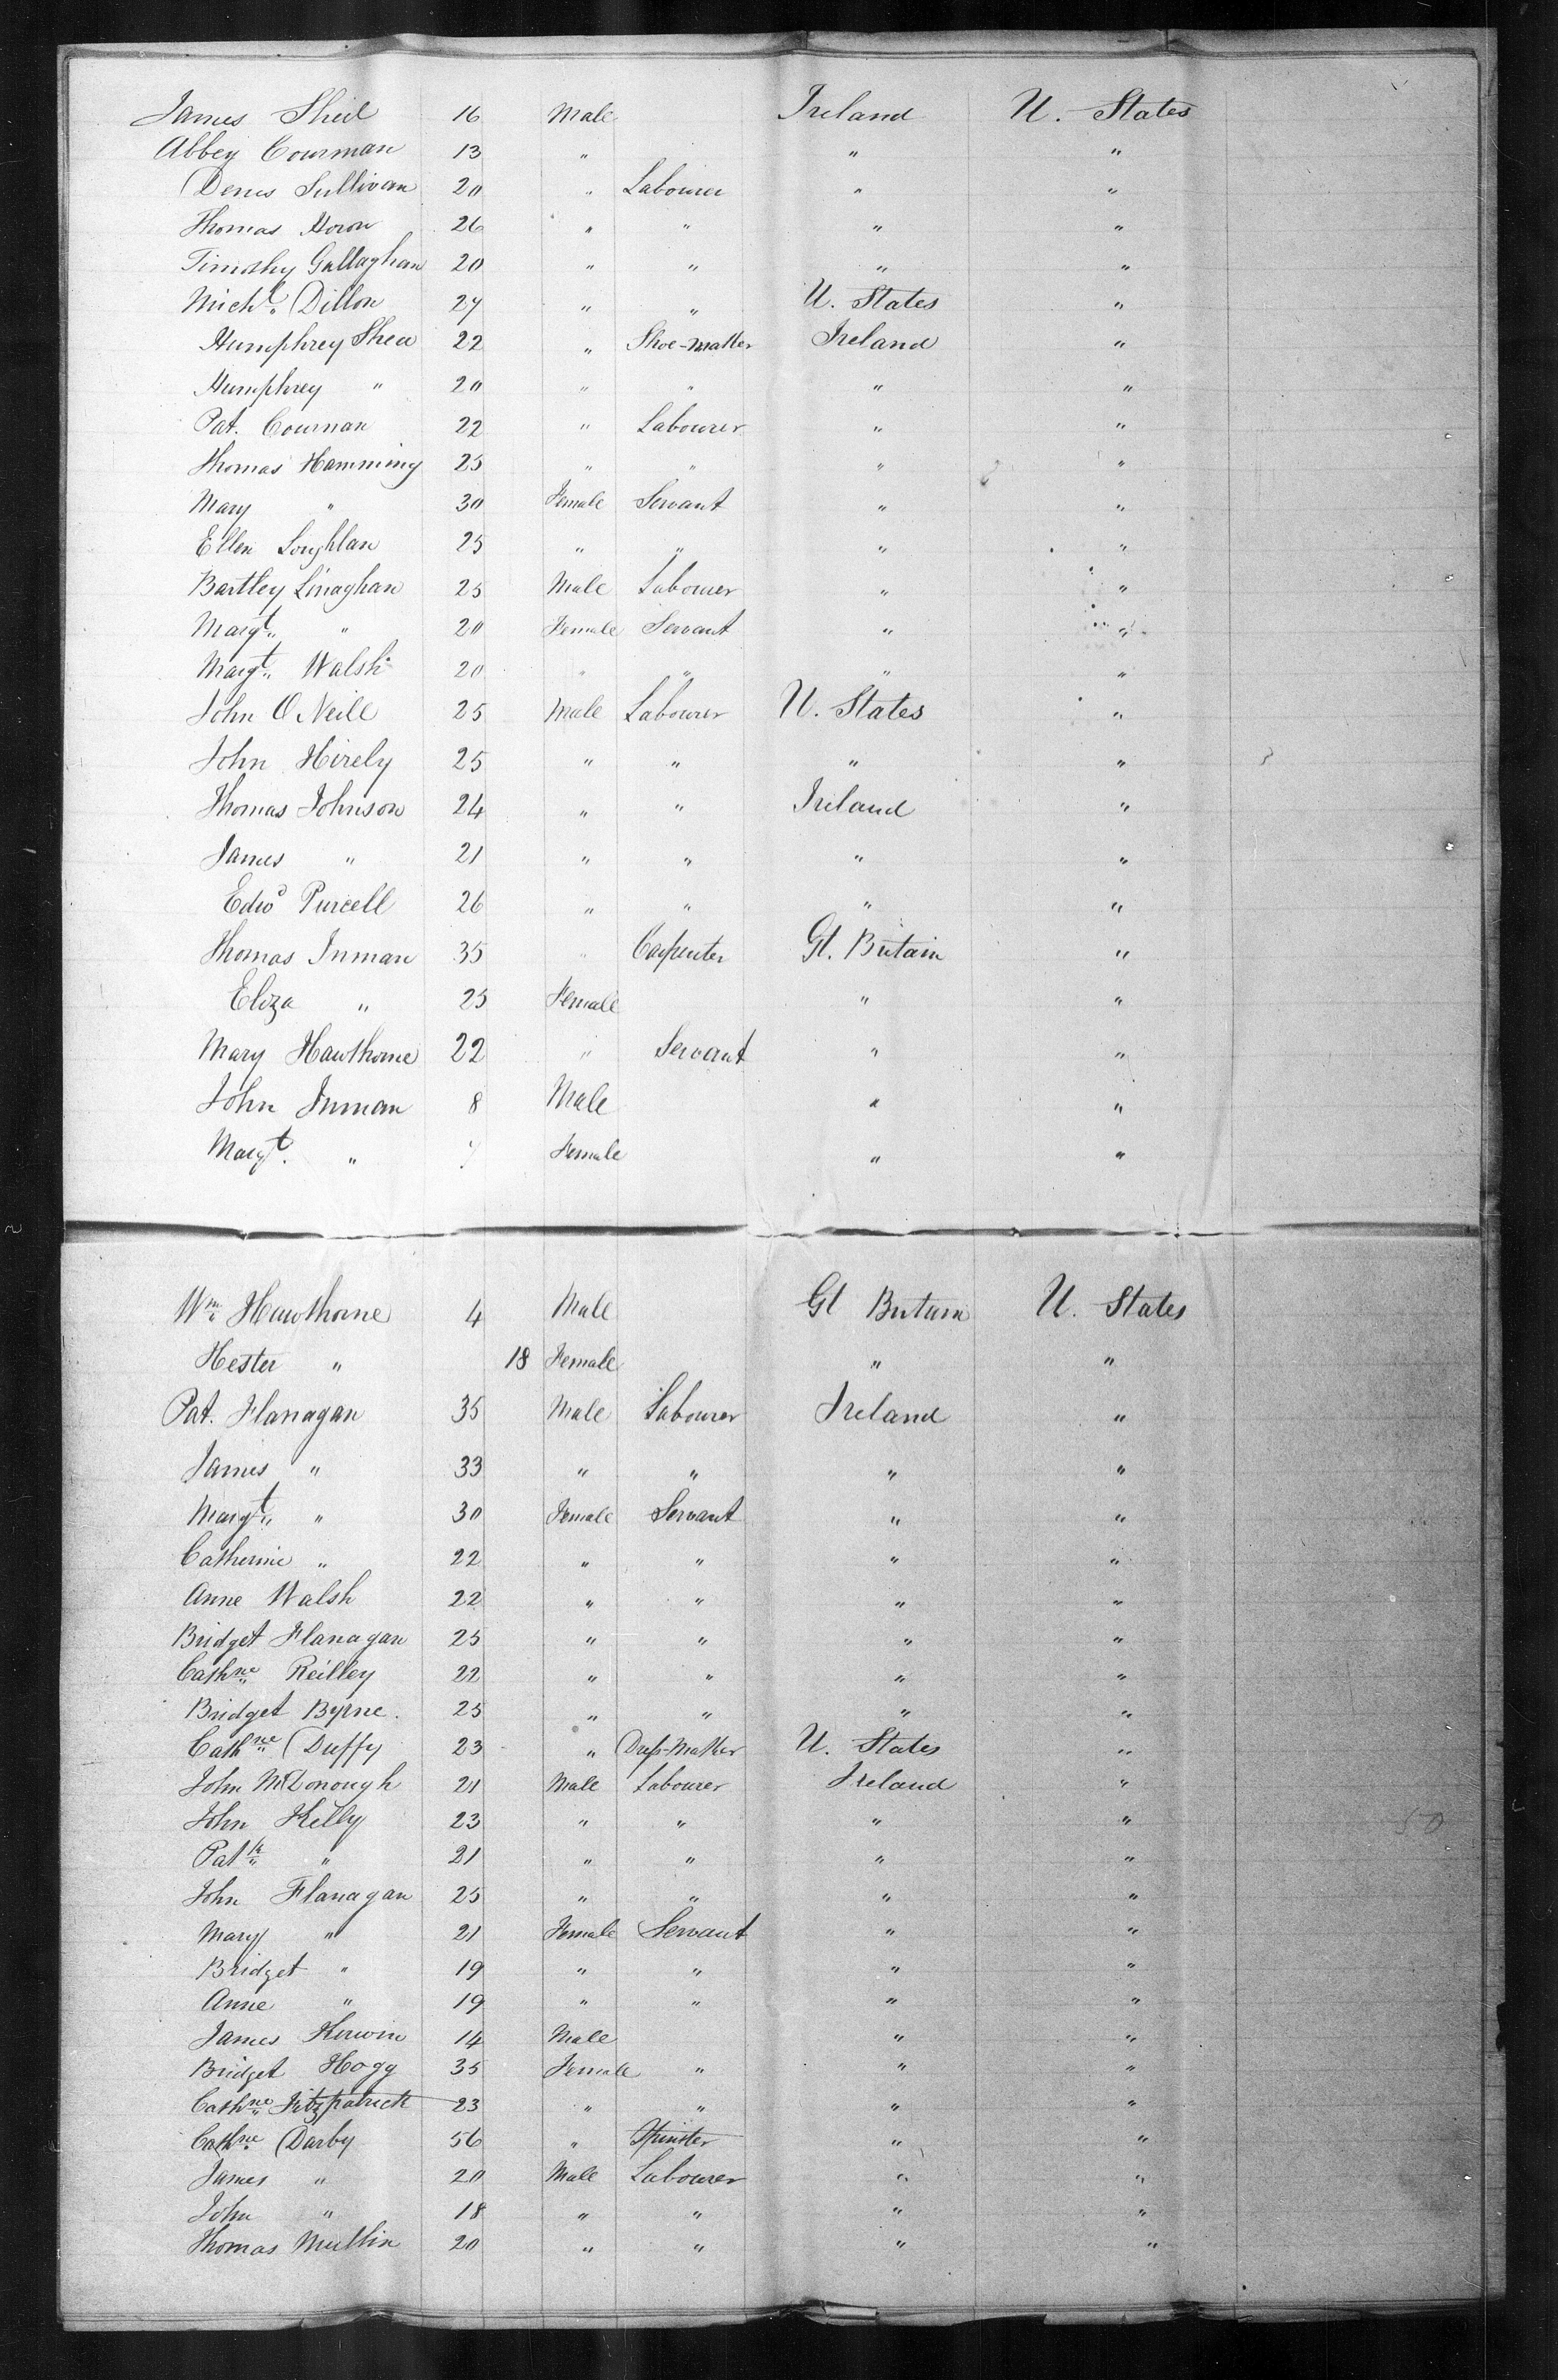 James Shiel 16 Male Ireland U. States
Abbey Courman 13 " " "
Denis Sullivan 20 " Labourer " "
Thomas Horon 26 " " " "
Timothy Gallaghan 20 " " " "
Michl. Dillon 27 " " U. States "
Humphrey Shea 22 " Shoe-maker Ireland "
Humphrey " 20 " " " "
Pat. Cournan 22 " Labourer " "
Thomas Hamming 25 " " " "
Mary " 30 Female Servant " "
Ellen Loughlan 25 " " " "
Bartley Linaghan 25 Male Labourer " "
Margt. " 20 Female Servant " "
Margt. Walsh 20 " " " "
John O Neill 25 Male Labourer U. States "
John Hirely 25 " " " "
Thomas Johnson 24 " " Ireland "
James " 21 " " " "
Edwd Purcell 26 " " " "
Thomas Inman 35 " Carpenter Gt. Britain "
Eliza " 25 Female " "
Mary Hawthorne 22 " Servant " "
John Inman 8 Male " "
Margt. " 7 Female " "
Wm. Hawthorne 4 Male Gt Britain U. States
Hester " 18 Female " "
Pat. Flanagan 35 Male Labourer Ireland "
James " 33 " " " "
Margt. " 30 Female Servant " "
Catherine " 22 " " " "
Anne Walsh 22 " " " "
Bridget Flanagan 25 " " " "
Cathne. Reilley 22 " " " "
Bridget Byrne. 25 " " " "
Cathne. Duffy 23 " Dress-Maker U. States "
John McDonough 21 Male Labourer Ireland "
John Kelly 23 " " " "
Patk. " 21 " " " "
John Flanagan 25 " " " "
Mary " 21 Female Servant " "
Bridget " 19 " " " "
Anne " 19 " " " "
James Kerwin 14 Male " "
Bridget Hogg 35 Female " " "
Cathne. Fitzpatrick 23 " " " "
Cathne. Darby 56 " Spinster " "
James " 20 Male Labourer " "
John " 18 " " " "
Thomas Mullin 20 " " " "
50